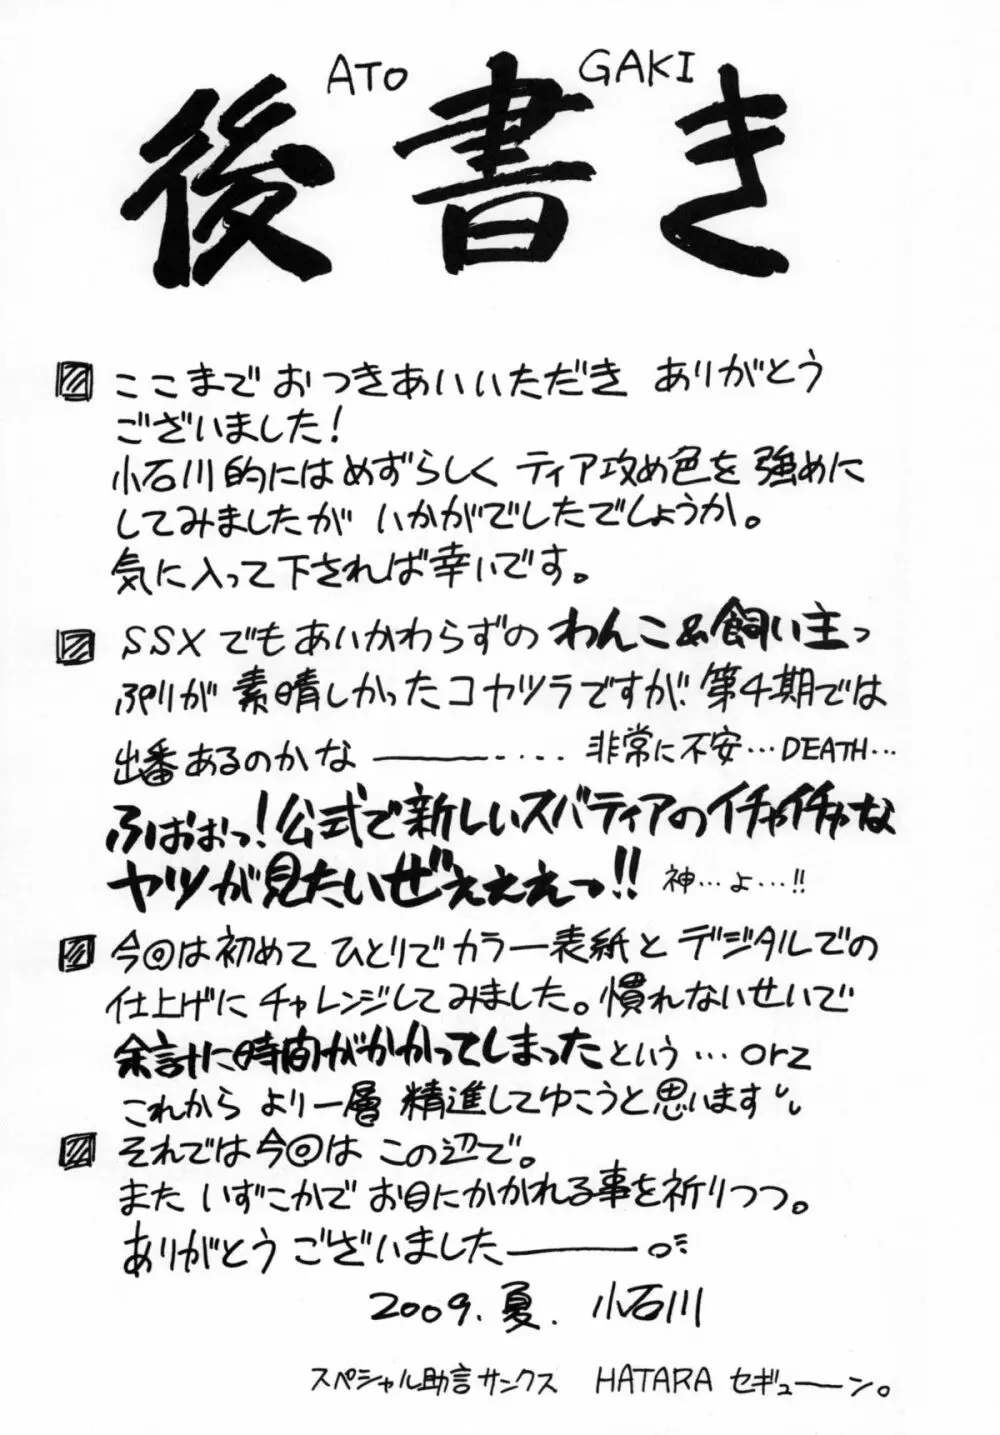 ATO GAKI
後書き
ここまでおつきあいいただき ありがとう
ございました!
小石川的にはめずらしく ティア攻め色を 強めに
してみましたが いかがでしたでしょうか。
気に入って下されば幸いです。
SSXでもあいかわらずの わんこ&飼い主っ
ぷりが 素晴しかったコヤツラですが、第4期では
出番あるのかな――――‥‥ 非常に不安…DEATH…
ふおおっ!公式で新しいスバティアのイチャイチャな
ヤツが見たいぜぇぇぇっ!! 神…よ…!!
今回は初めて ひとりでカラー表紙と デジタルでの
仕上げに チャレンジしてみました。慣れないせいで
余計に時間がかかってしまったという…orz
これから より一層 精進してゆこうと思います
それでは今回は この辺で。
また いずこかで お目にかかれる事を祈りつつ。
ありがとう ございました――――。
2009.夏. 小石川
スペシャル助言サンクス HATARA セギューーン。